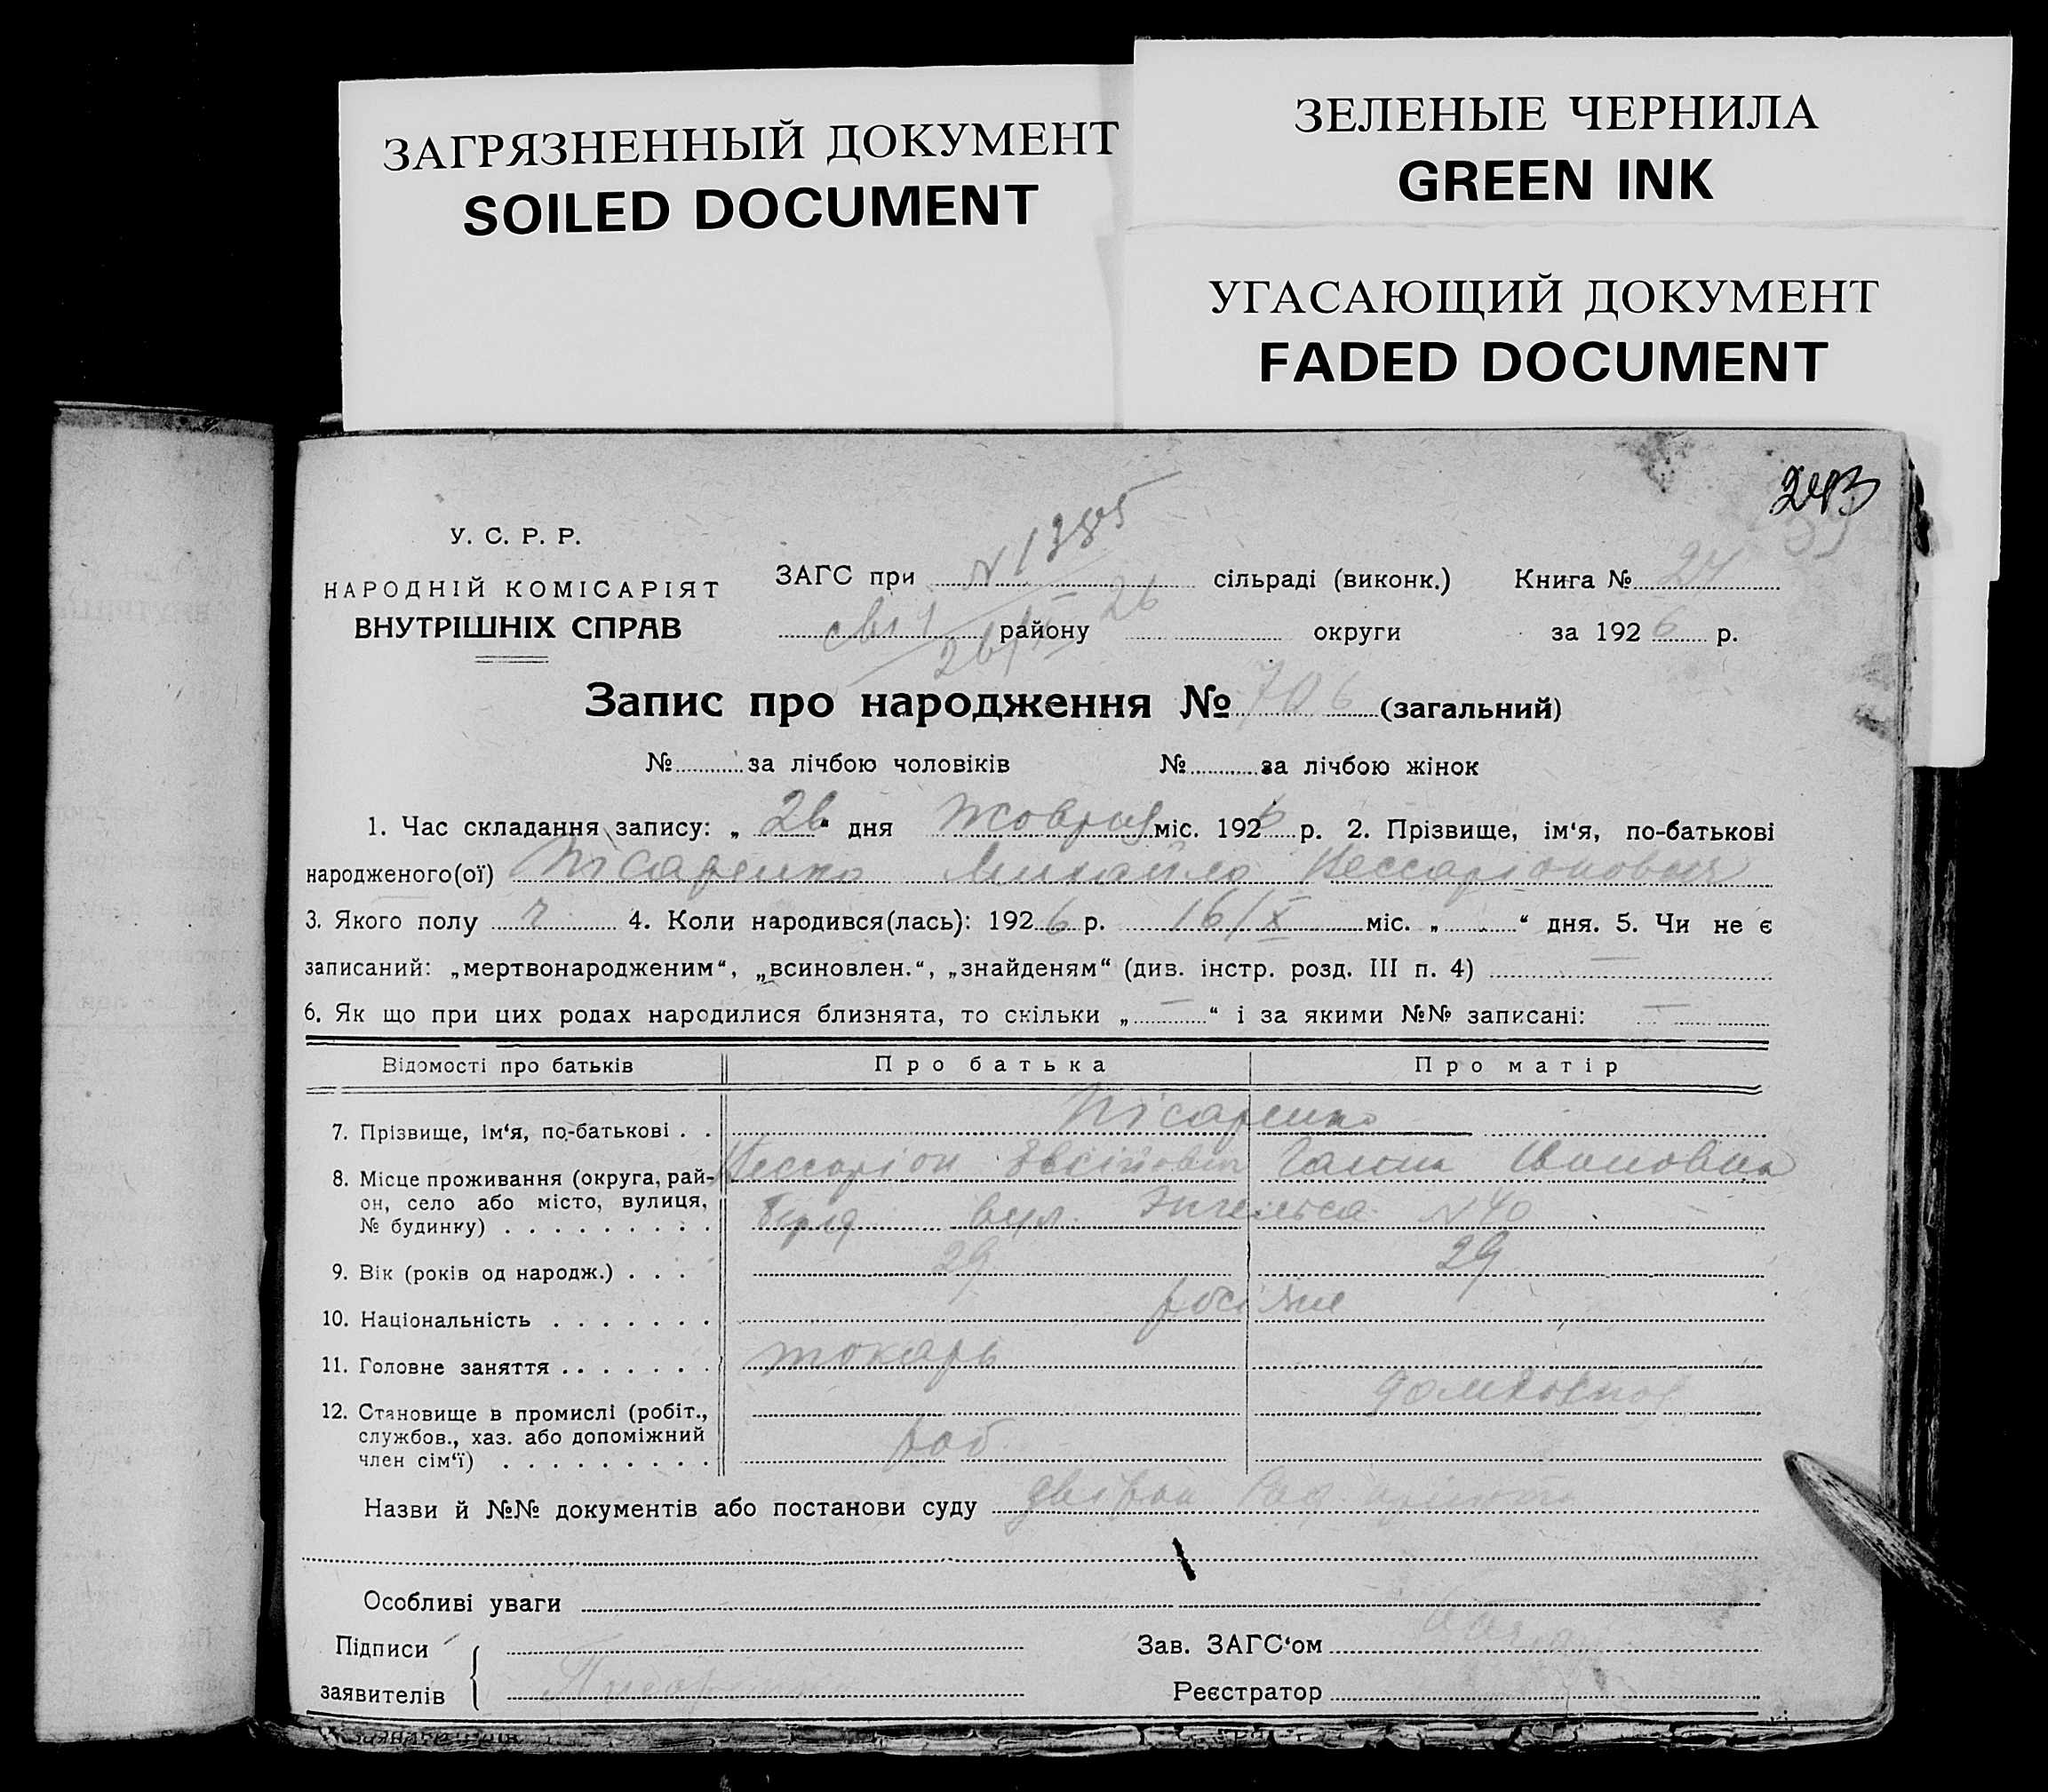 ЗАГРЯЗНЕННЫЙ ДОКУМЕНТ
SOILED DOCUMENT
ЗЕЛЕНЫЕ ЧЕРНИЛА
GREEN INK
УГАСАЮЩИЙ ДОКУМЕНТ
FADED DOCUMENT
243
У. С. Р. Р.
НАРОДНІЙ КОМІСАРІЯТ
ВНУТРІШНІХ СПРАВ
ЗАГС при сільраді (виконк.) Книга № 24
району округи за 1926 р.
Запис про народження № 706 (загальний)
№ за лічбою чоловіків № за лічбою жінок
1. Час складання запису: „ 26 “ дня Жовтня міс. 1926 р. 2. Прізвище, ім'я, по-батькові
народженого(ої) Пісаренко Михайло Вессаріонович
3. Якого полу ч 4. Коли народився(лась): 1926 р. 16/X міс. „ “ дня. 5. Чи не є
записаний: „мертвонародженим“, „всиновлен.“, „знайденям“ (див. інстр. розд. III п. 4) —
6. Як що при цих родах народилися близнята, то скільки „ — “ і за якими №№ записані: —
Відомості про батьків Про батька Про матір
7. Прізвище, ім‘я, по-батькові . . Пісаренко
Вессаріон Євсійович Ганна Івановна
8. Місце проживання (округа, рай-
он, село або місто, вулиця,
№ будинку) . . . . . . . . . вул. Энгельса N 40
9. Вік (років од народж.) . . . 29 29
10. Національність . . . . . . . росіяне
11. Головне заняття . . . . . . . токарь
12. Становище в промислі (робіт.,
службов., хаз. або допоміжний
член сім‘ї) . . . . . . . . . роб
Назви й №№ документів або постанови суду
Особливі уваги
Підписи
заявителів
Зав. ЗАГС‘ом
Реєстратор